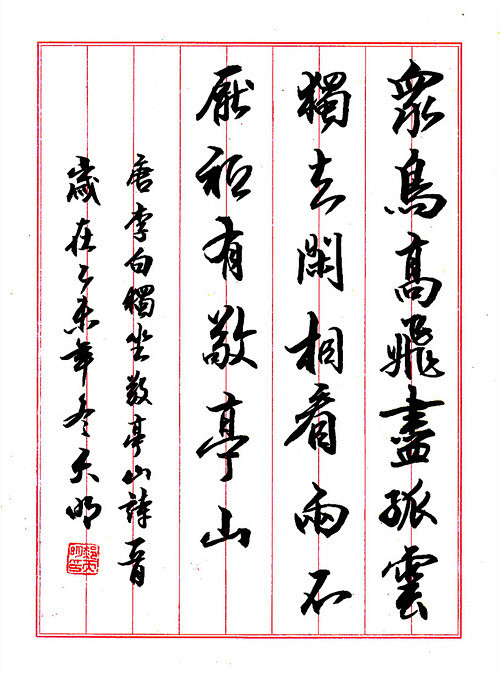 眾鳥高飛盡孤雲
獨去閑相看兩不
厭祗有敬亭山
唐李白獨坐敬亭山詩一首
歲在乙未年冬天明